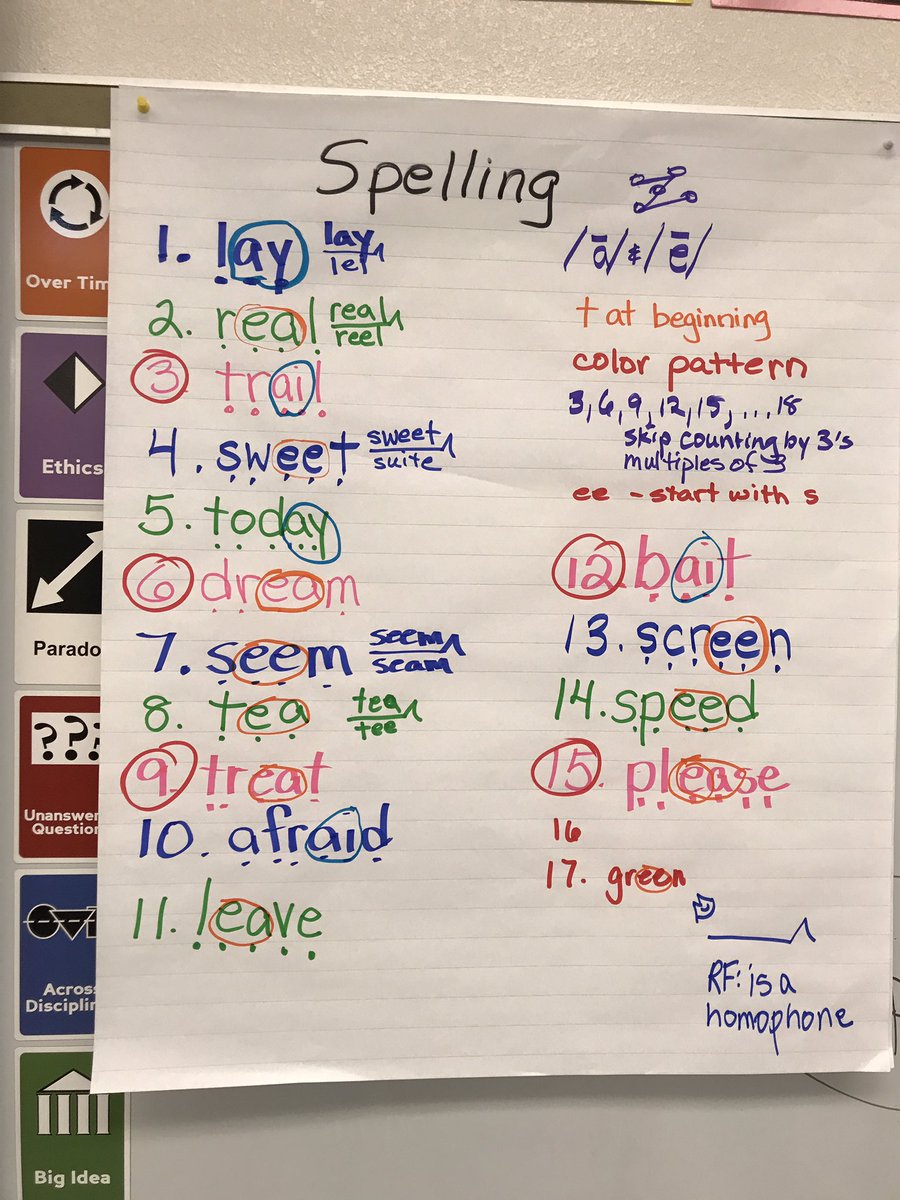 Spelling
1. lay lay
lei
2. real real
reel
3 trail
4. sweet sweet
suite
5. today
6 dream
7. seem seem
seam
8. tea tea
tee
9. treat
10. afraid
11. leave
/ā/ & /ē/
t at beginning
color pattern
3, 6, 9, 12, 15, ... 18
skip counting by 3's
multiples of 3
ee - start with s
12. bait
13. screen
14. speed
15. please
16
17. green
RF: is a
homophone
Over Tim
Ethics
Parado
???
Unanswer
Question
Across
Disciplin
Big Idea